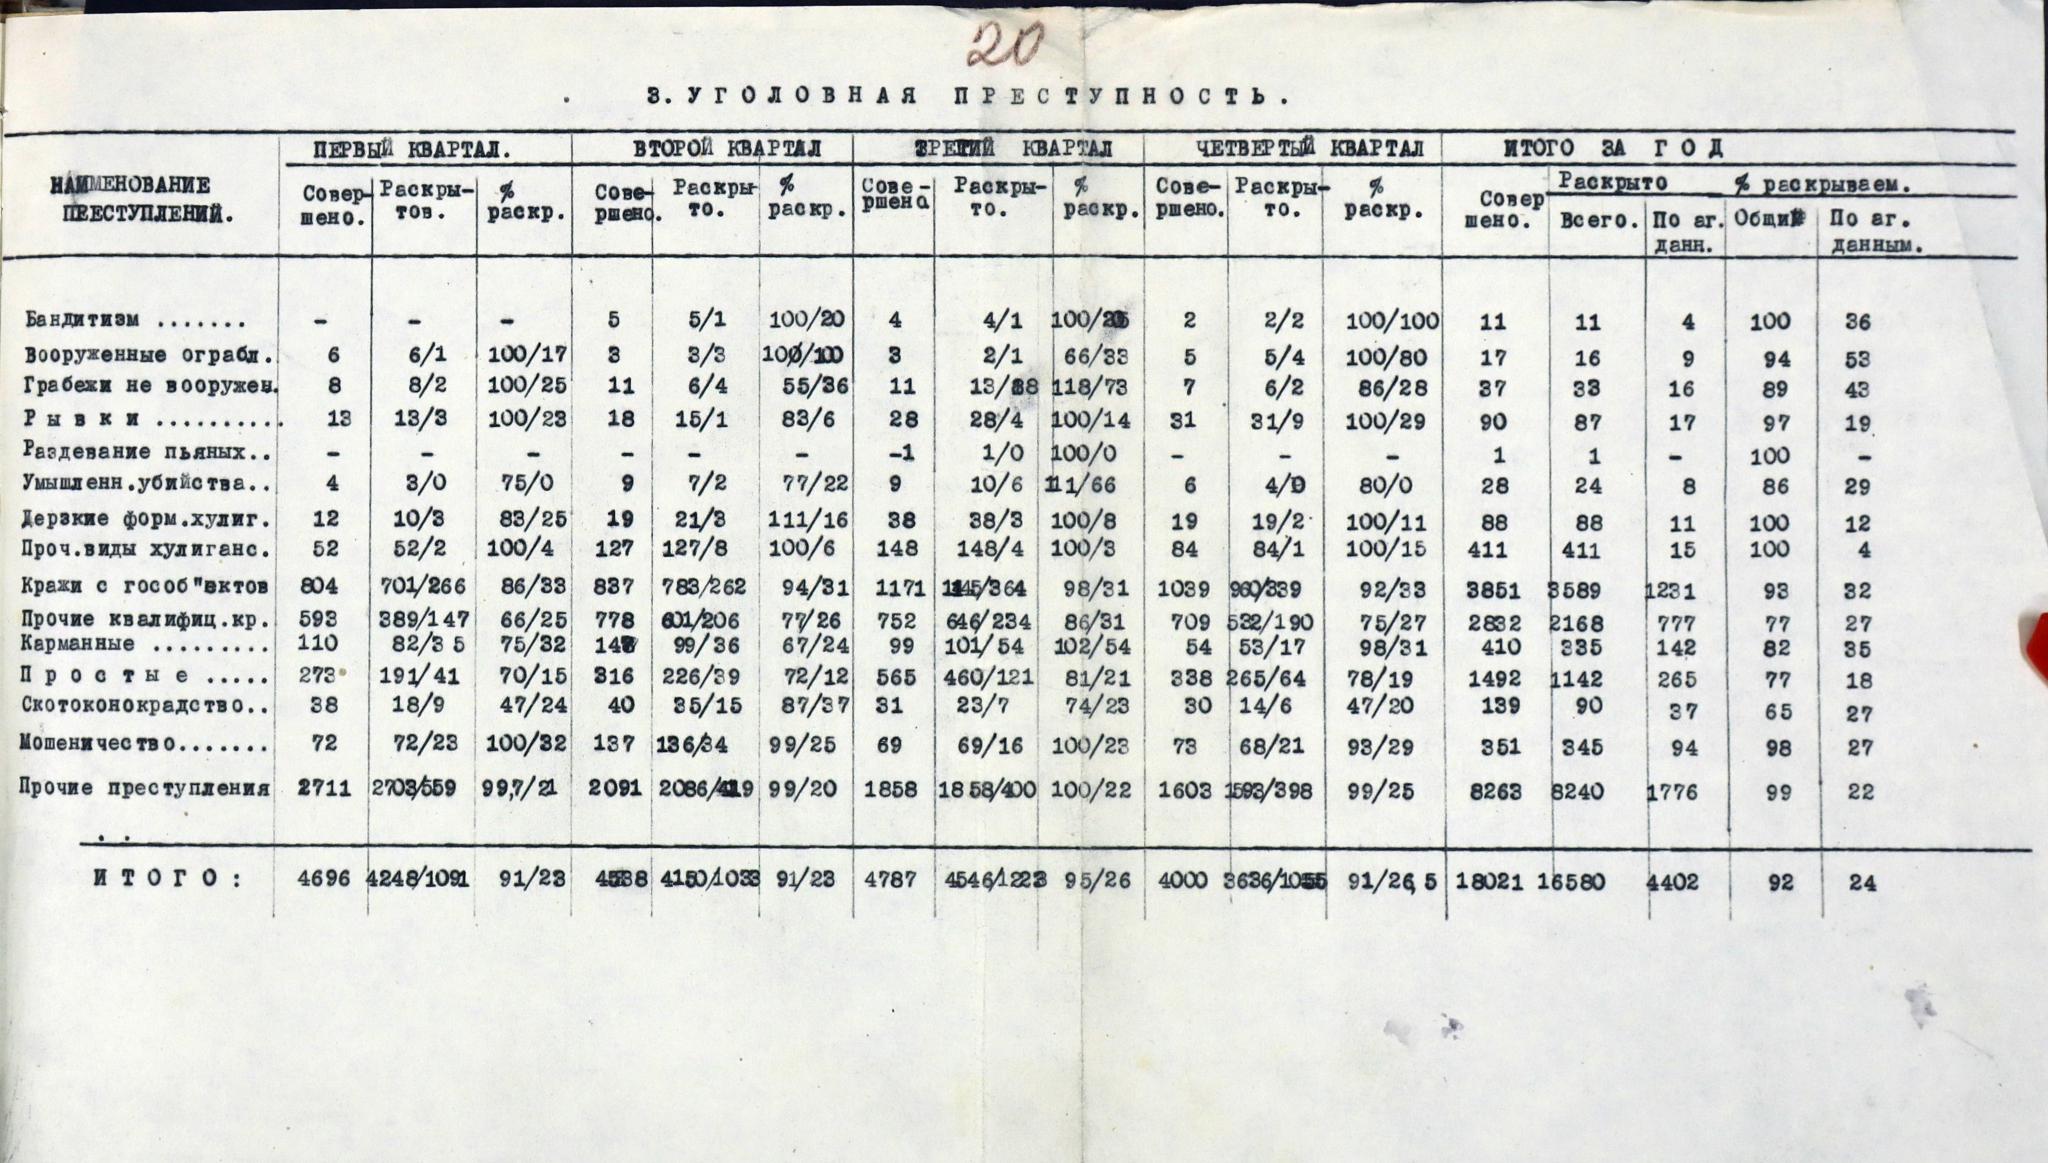 20
3. УГОЛОВНАЯ ПРЕСТУПНОСТЬ.
НАИМЕНОВАНИЕ ПРЕЕСТУПЛЕНИЙ. ПЕРВЫЙ КВАРТАЛ. ВТОРОЙ КВАРТАЛ ТРЕТИЙ КВАРТАЛ ЧЕТВЕРТЫЙ КВАРТАЛ ИТОГО ЗА ГОД
Совер-шено. Раскры-тов. % раскр. Сове-ршено. Раскры-то. % раскр. Сове-ршена Раскры-то. % раскр. Сове-ршено. Раскры-то. % раскр. Совер шено. Раскрыто % раскрываем.
Всего. По аг. данн. Общий По аг. данным.
Бандитизм ....... - - - 5 5/1 100/20 4 4/1 2 2/2 100/100 11 11 4 100 36
Вооруженные ограбл. 6 6/1 100/17 3 3/3 100/100 3 2/1 66/33 5 5/4 100/80 17 16 9 94 53
Грабежи не вооружен. 8 8/2 100/25 11 6/4 55/36 11 118/73 7 6/2 86/28 37 33 16 89 43
Рывки .......... 13 13/3 100/23 18 15/1 83/6 28 28/4 100/14 31 31/9 100/29 90 87 17 97 19
Раздевание пьяных.. - - - - - - -1 1/0 100/0 - - - 1 1 - 100 -
Умышленн.убийства.. 4 3/0 75/0 9 7/2 77/22 9 10/6 111/66 6 4/0 80/0 28 24 8 86 29
Дерзкие форм.хулиг. 12 10/3 83/25 19 21/3 111/16 38 38/3 100/8 19 19/2 100/11 88 88 11 100 12
Проч.виды хулиганс. 52 52/2 100/4 127 127/8 100/6 148 148/4 100/3 84 84/1 100/15 411 411 15 100 4
Кражи с гособ"ектов 804 701/266 86/33 837 783/262 94/31 1171 1145/364 98/31 1039 960/339 92/33 3851 3589 1231 93 32
Прочие квалифиц.кр. 593 389/147 66/25 778 601/206 77/26 752 646/234 86/31 709 532/190 75/27 2832 2168 777 77 27
Карманные ......... 110 82/35 75/32 99/36 67/24 99 101/54 102/54 54 53/17 98/31 410 335 142 82 35
Простые ..... 273 191/41 70/15 316 226/39 72/12 565 460/121 81/21 338 265/64 78/19 1492 1142 265 77 18
Скотоконокрадство.. 38 18/9 47/24 40 35/15 87/37 31 23/7 74/23 30 14/6 47/20 139 90 37 65 27
Мошеничество....... 72 72/23 100/32 137 136/34 99/25 69 69/16 100/23 73 68/21 93/29 351 345 94 98 27
Прочие преступления .. 2711 2703/559 99,7/21 2091 2086/419 99/20 1858 1858/400 100/22 1603 1593/398 99/25 8263 8240 1776 99 22
ИТОГО: 4696 4248/1091 91/23 4538 4150/1033 91/23 4787 4546/1223 95/26 4000 3636/1055 91/26,5 18021 16580 4402 92 24